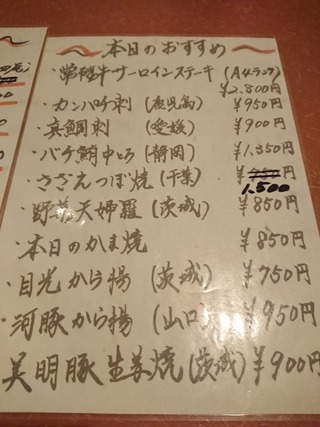 本日のおすすめ
・常陸牛サーロインステーキ (A4ランク)
¥2.800円
・カンパチ刺 (鹿児島) ¥950円
・真鯛刺 (愛媛) ¥900円
・バチ鮪中とろ (静岡) ¥1.350円
・さざえつぼ焼 (千葉) ¥950円
1.500
・野菜天婦羅 (茨城) ¥850円
・本日のかま焼 ¥850円
・目光から揚 (茨城) ¥750円
・河豚から揚 (山口) ¥950円
美明豚生姜焼 (茨城) ¥900円